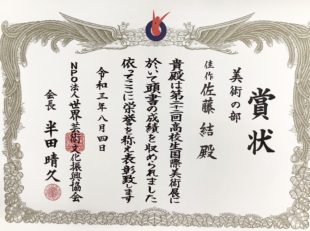 賞状
美術の部
佳作 佐藤 結 殿
貴殿は第二十二回高校生国際美術展に
於いて頭書の成績を収められました
依ってここに栄誉を称え表彰致します
令和三年八月四日
NPO法人世界芸術文化振興協会
会長 半田晴久